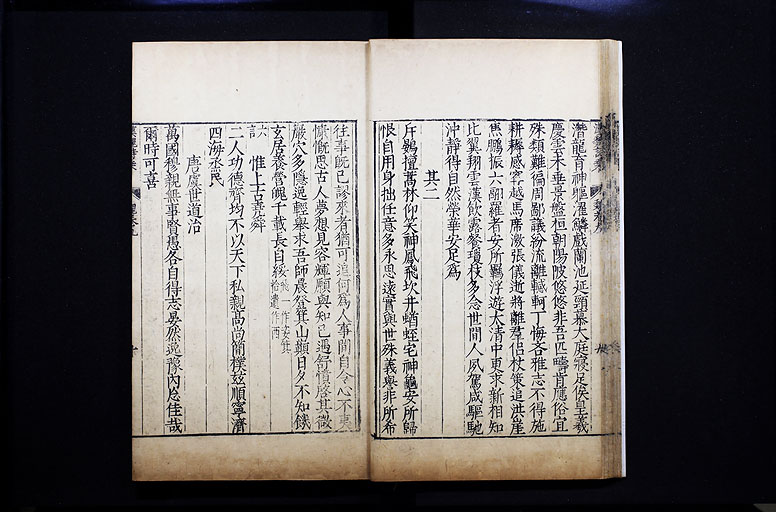 潛龍育神軀濯鱗戲蘭池延頸慕大庭寢足俟皇羲
慶雲未垂景盤桓朝陽陂悠悠非吾匹疇肯應俗宜
殊類難徧周鄙議紛流離轗軻丁悔吝雅志不得施
耕耨感甯越馬席激張儀逝將離羣侶杖策追洪崖
焦鵬振六翮羅者安所羈浮遊太清中更求新相知
比翼翔雲漢飲露餐瓊枝多念世間人夙駕咸驅馳
沖靜得自然榮華安足爲
其二
斥鷃擅蒿林仰笑神鳳飛坎井蝤蛭宅神龜安所歸
恨自用身拙任意多永思遠實與世殊義譽非所希
往事既已謬來者猶可追何爲人事間自令心不夷
慷慨思古人夢想見容輝願與知己遇舒憤啓其微
巖穴多隱逸輕舉求吾師晨登箕山巔日夕不知饑
玄居養營魄千載長自綏
六言
惟上古堯舜
二人功德齊均不以天下私親高尚簡樸茲順寧濟
四海烝民
唐虞世道治
萬國穆親無事賢愚各自得志晏然逸豫內忘佳哉
爾時可喜